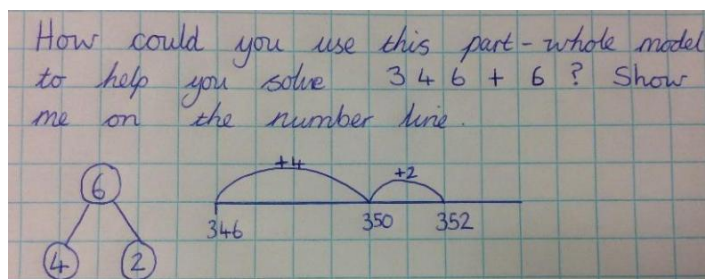 How could you use this part-whole model
to help you solve 346 + 6 ? Show
me on the number line.
+4 +2
6
346 350 352
4 2